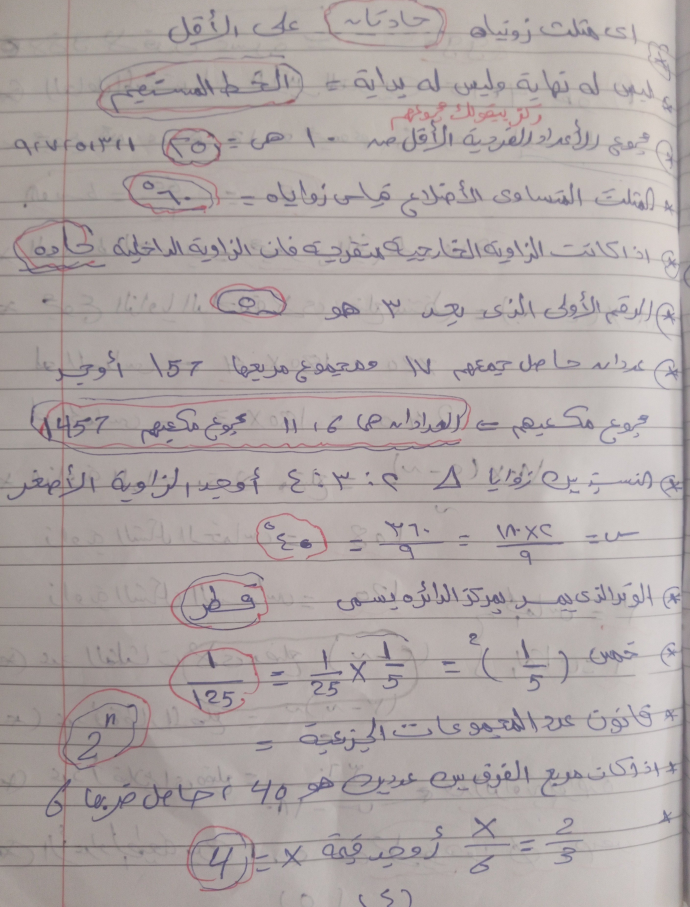 * اى مثلث زوتياه حادتان على الأقل
* ليس له نهاية وليس له بداية = الخط المستقيم
ركز بيقولك مجموعهم
* مجموع الأعداد الفردية الأقل من ١٠ هى = ٢٥ ١،٣،٥،٧،٩
* المثلث المتساوى الأضلاع قياس زواياه = ٦٠°
* اذا كانت الزاويه الخارجية منفرجة فان الزاوية الداخلية حاده
* الرقم الأولى الذى بعد ٣ هو ٥
* عددان حاصل جمعهم ١٧ ومجموع مربعها 157 أوجد
مجموع مكعبهم = العددان هما 6، 11 مجموع مكعبهم 1457
* النسبة بين زوايا Δ ٢ : ٣ : ٤ أوجد الزاوية الأصغر
س = ١٨٠×٢/٩ = ٣٦٠/٩ = ٤٠°
* الوتر الذى يمر بمركز الدائره يسمى قطر
* خمس (1/5)² = 1/5 × 1/25 = 1/125
* قانون عدد المجموعات الجزئية = 2ⁿ
* اذا كان مربع الفرق بين عددين هو 40، حاصل ضربهما 6
* X/6 = 2/3 أوجد قيمة X = 4
(٤)